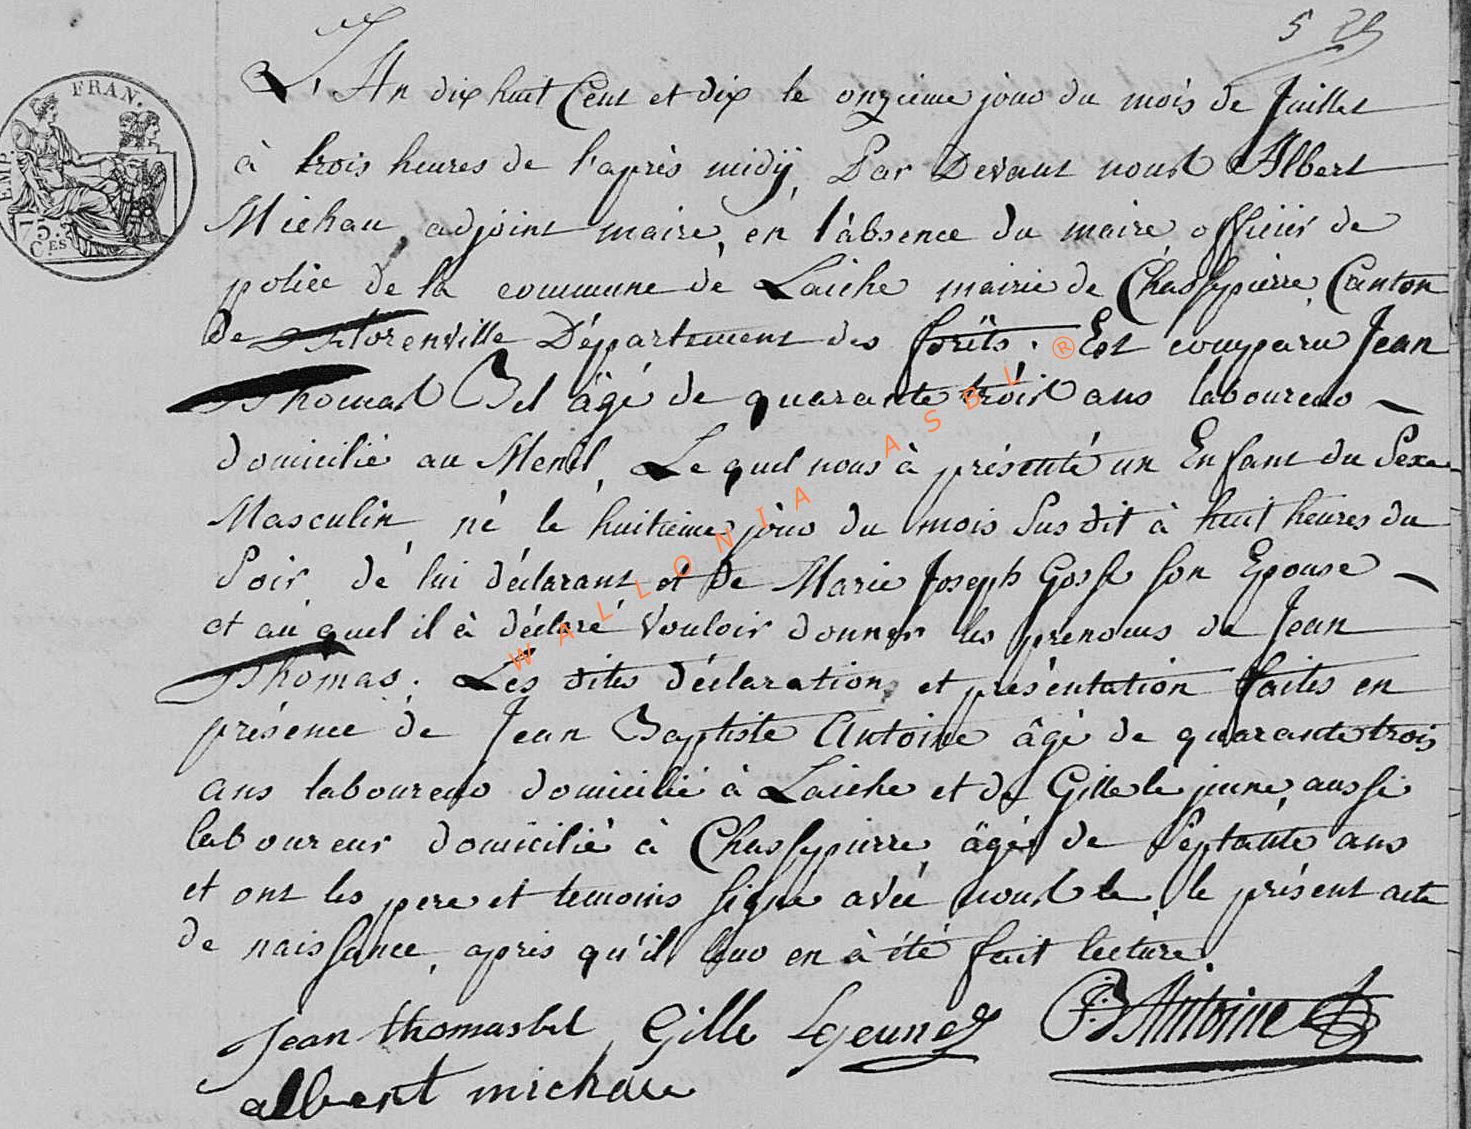 5
FRAN.
EMP.
75.
C.ES
L'An dix huit Cent et dix le onzieme jour du mois de Juillet
à trois heures de l'après midÿ, Par Devant nous Albert
Michau, adjoint maire, en l'absence du maire officier de
police de la commune de Laiche mairie de Chassepierre, Canton
de Florenville Département des forêts. Est comparu Jean
Thomas Bel âgé de quarante trois ans laboureur
domicilié au Menil, Le quel nous à présenté un Enfant du Sexe
Masculin, né le huitieme jour du mois Susdit à huit heures du
Soir de lui déclarant et de Marie Joseph Gosse son Epouse
et au quel il à déclaré Vouloir donner les prenoms de Jean
Thomas. Les dites déclaration, et présentation faites en
présence de Jean Baptiste Antoine âgé de quarante trois
ans laboureur domicilié à Laiche et de Gille le jeune, aussi
laboureur domicilié à Chassepierre, âgé de Septante ans
et ont les pere et temoins signe avec nous le présent acte
de naissance, après qu'il leur en à été fait lecture.
Jean thomas bel Gille Lejeune JB Antoine
albert michau
WALLONIA ASBL ®